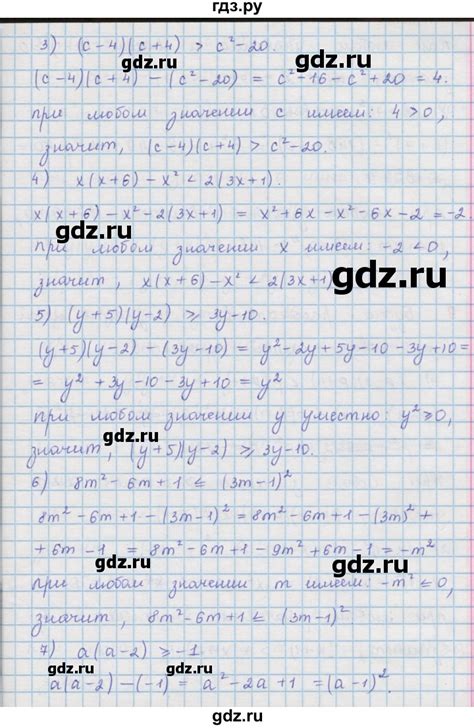 гдз.ру
3) (c-4)(c+4) > c²-20.
gdz.ru
(c-4)(c+4) - (c²-20) = c²-16-c²+20 = 4.
gdz.ru
при любом значении c имеем: 4>0,
значит, (c-4)(c+4) > c²-20.
gdz.ru
4) x(x+6) - x² < 2(3x+1).
x(x+6) - x² - 2(3x+1) = x²+6x-x²-6x-2 = -2.
gdz.ru
при любом значении x имеем: -2<0,
значит, x(x+6) - x² < 2(3x+1)
gdz.ru
5) (y+5)(y-2) ⩾ 3y-10.
(y+5)(y-2) - (3y-10) = y²-2y+5y-10-3y+10=
= y²+3y-10-3y+10 = y²
gdz.ru
при любом значении y уместно: y²⩾0,
gdz.ru
значит, (y+5)(y-2) ⩾ 3y-10.
6) 8m²-6m+1 ⩽ (3m-1)²
gdz.ru
8m²-6m+1-(3m-1)² = 8m²-6m+1-(3m)²+
+6m-1 = 8m²-6m+1-9m²+6m-1 = -m²
gdz.ru
при любом значении m имеем: -m²⩽0,
значит, 8m²-6m+1 ⩽ (3m-1)²
gdz.ru
7) a(a-2) ⩾ -1
gdz.ru
a(a-2) - (-1) = a²-2a+1 = (a-1)².
gdz.ru